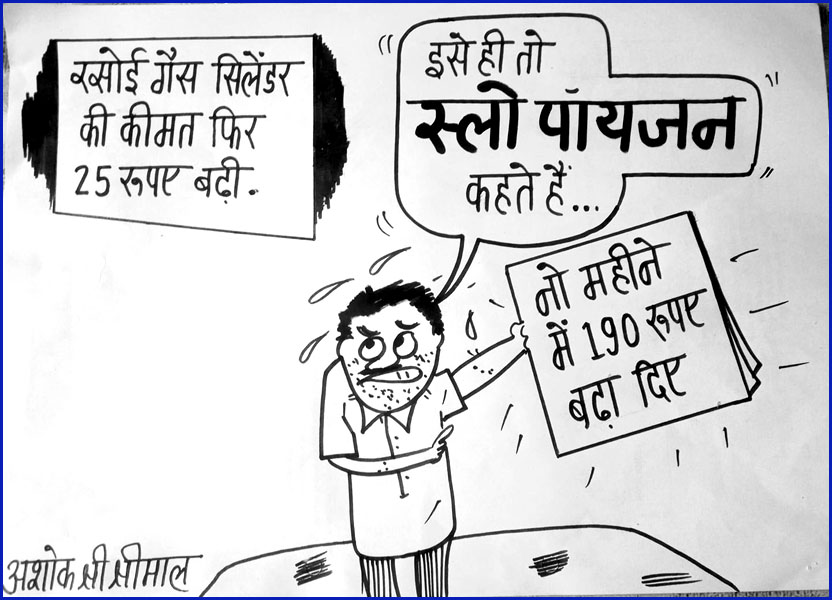 रसोई गैस सिलेंडर
की कीमत फिर
25 रूपए बढ़ी.
इसे ही तो
स्लो पॉयजन
कहते हैं...
नो महीने
में 190 रूपए
बढ़ा दिए
अशोक श्री श्रीमाल